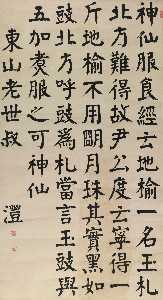 神仙服食經云地榆一名玉札
北方難得故尹公度云寧得一
斤地榆不用朙月珠其實黑如
豉北方呼豉為札當言玉豉與
五加煑服之可神仙
東山老世叔 澧